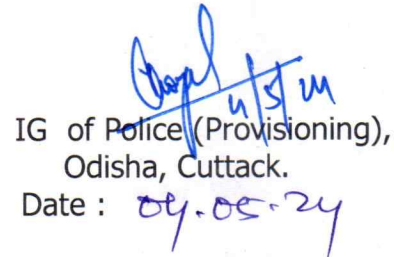 4/5/24
IG of Police (Provisioning),
Odisha, Cuttack.
Date : 04.05.24